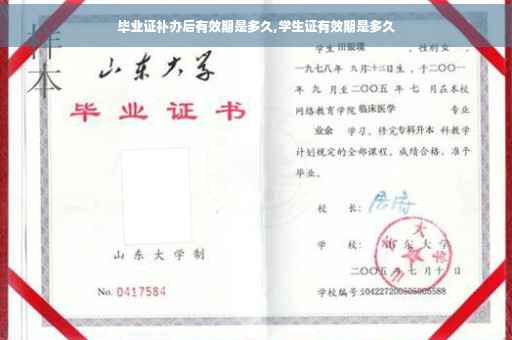 毕业证补办后有效期是多久,学生证有效期是多久
样本
山东大学
毕业证书
山东大学制
No. 0417584
学生 田银璞 ,性别女,
一九七八年 九月十三日生,于二〇〇一
年 九 月至二〇〇五 年 七 月在本校
网络教育学院临床医学 专业
业余 学习,修完专科升本 科教学
计划规定的全部课程,成绩合格,准予
毕业。
校 长:
学 校: 山东大学
二〇〇五年七月十日
学校编号:104227200505005588